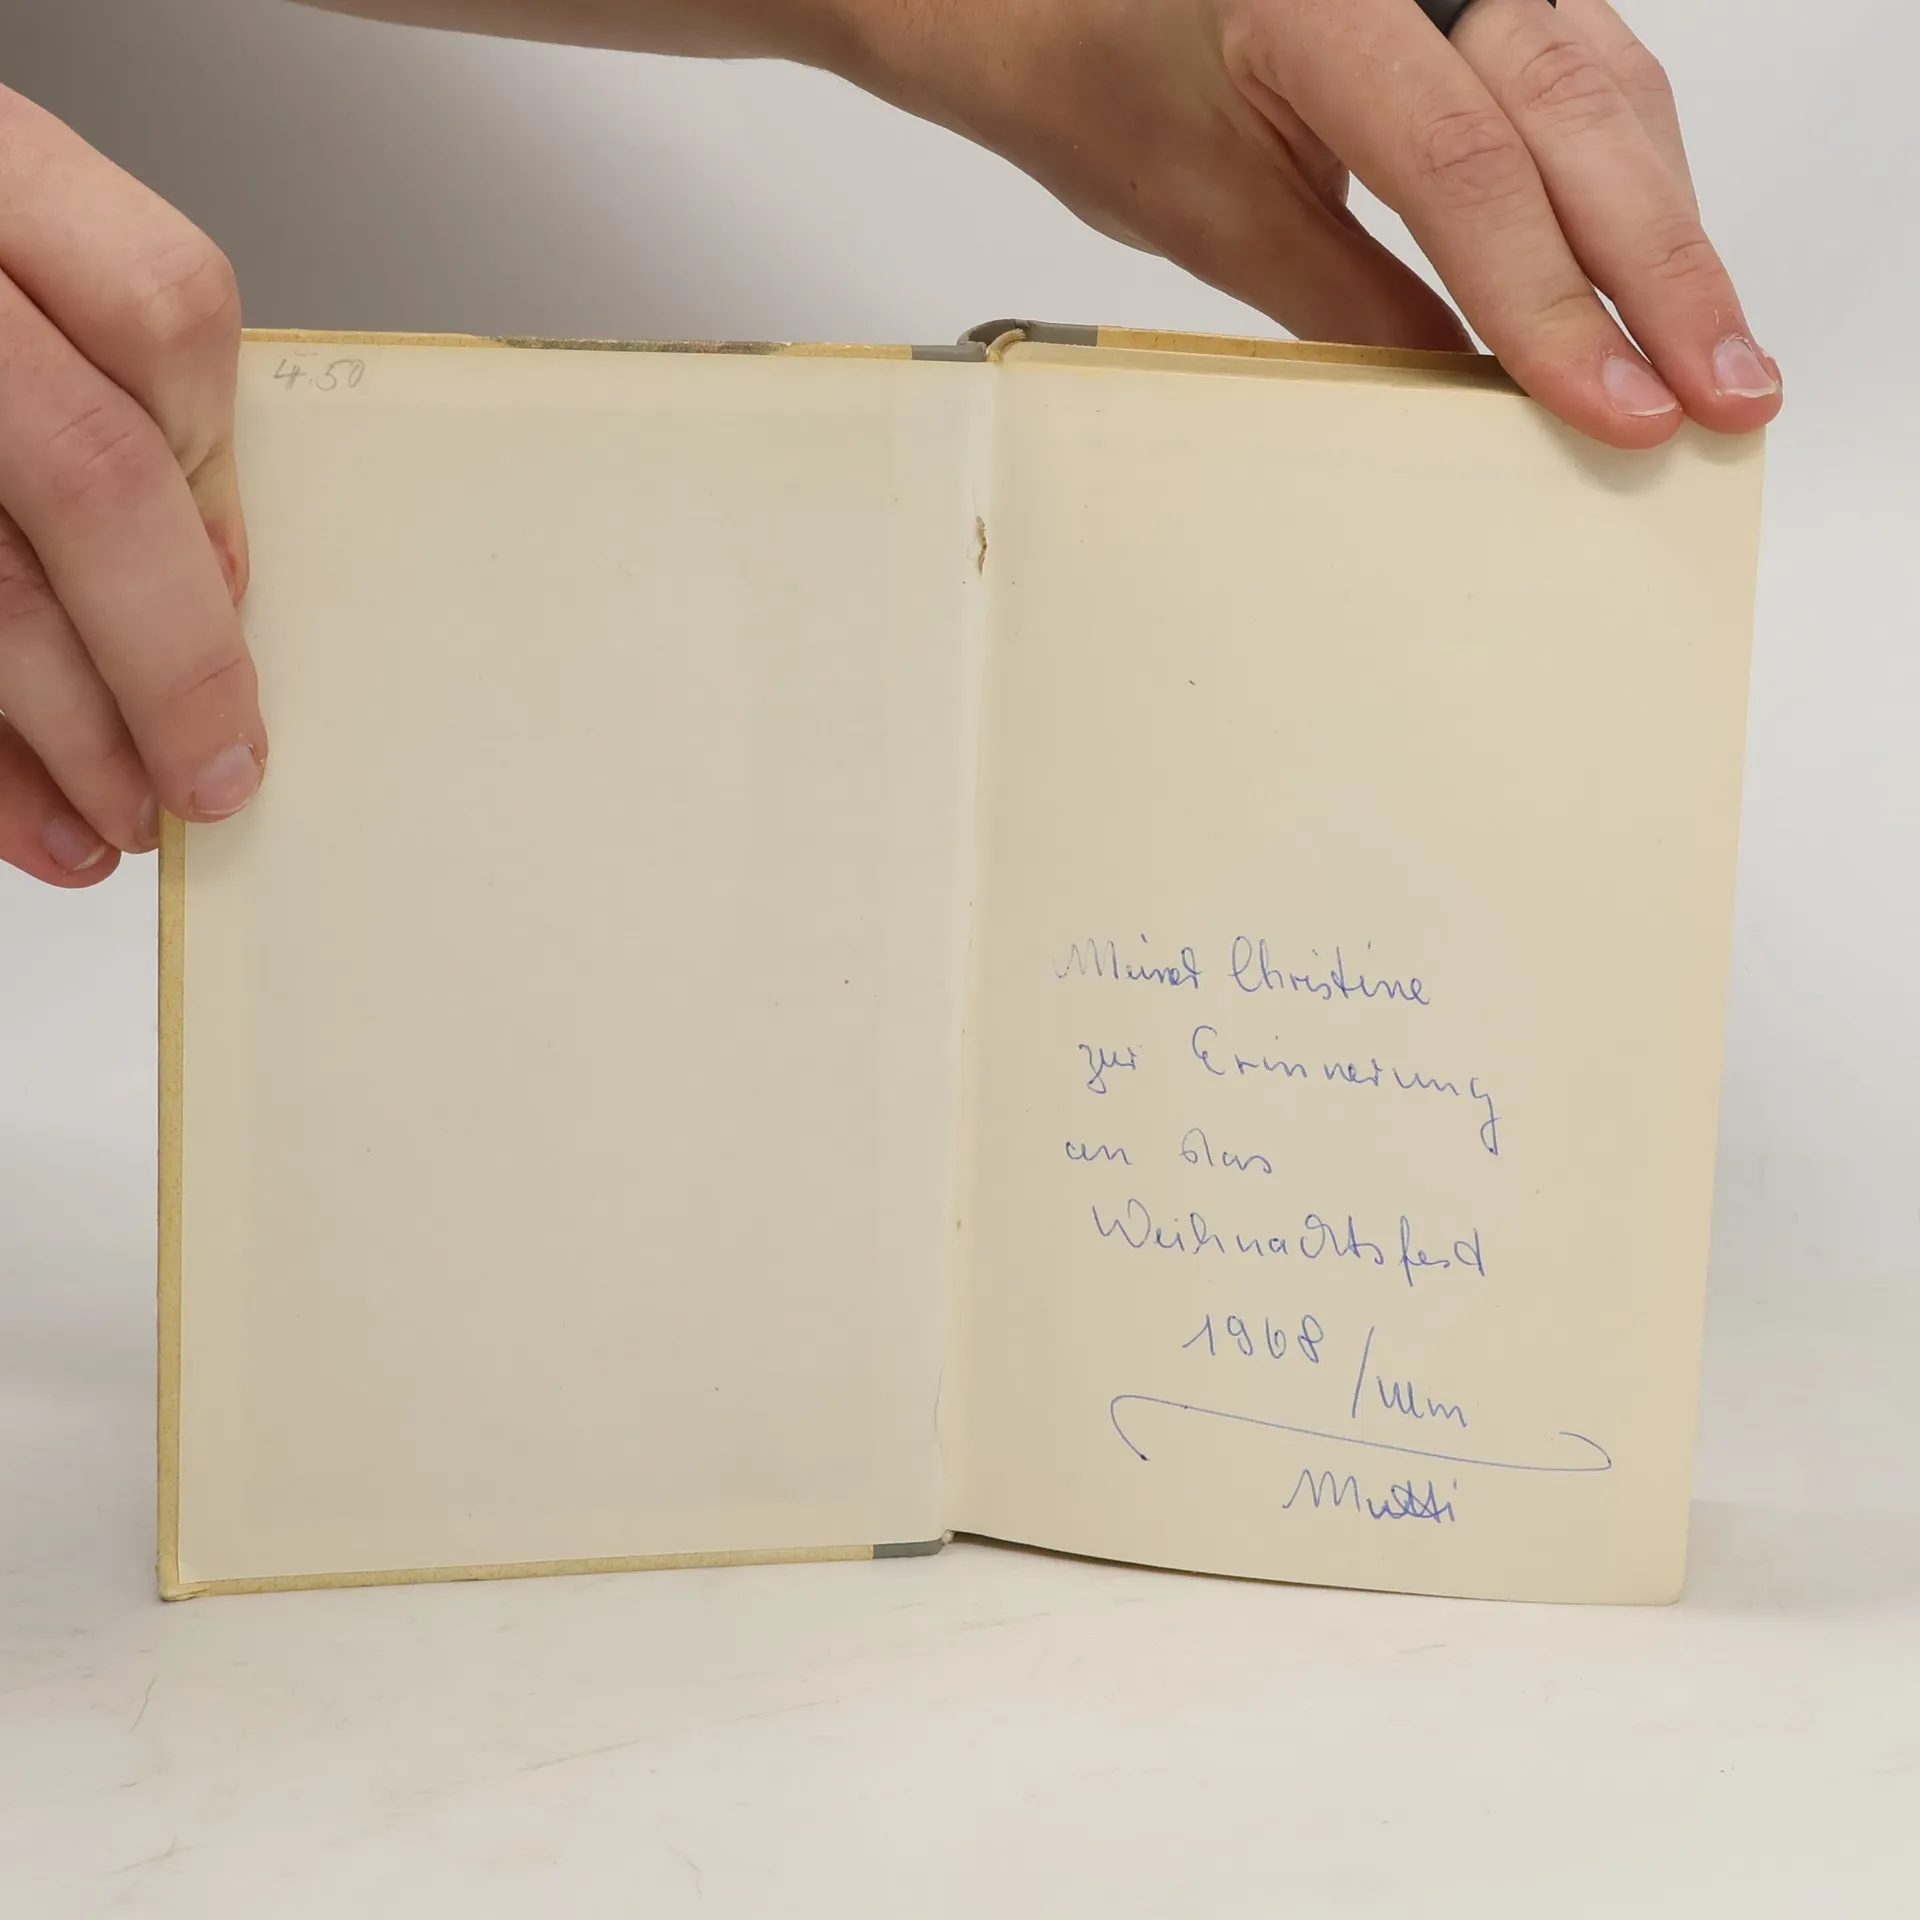 4.50
Meiner Christine
zur Erinnerung
an das
Weihnachtsfest
1968
Mutti